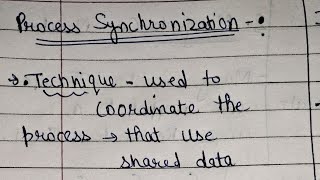 Process Synchronization -:
→ • Technique - used to
coordinate the
process → that use
shared data